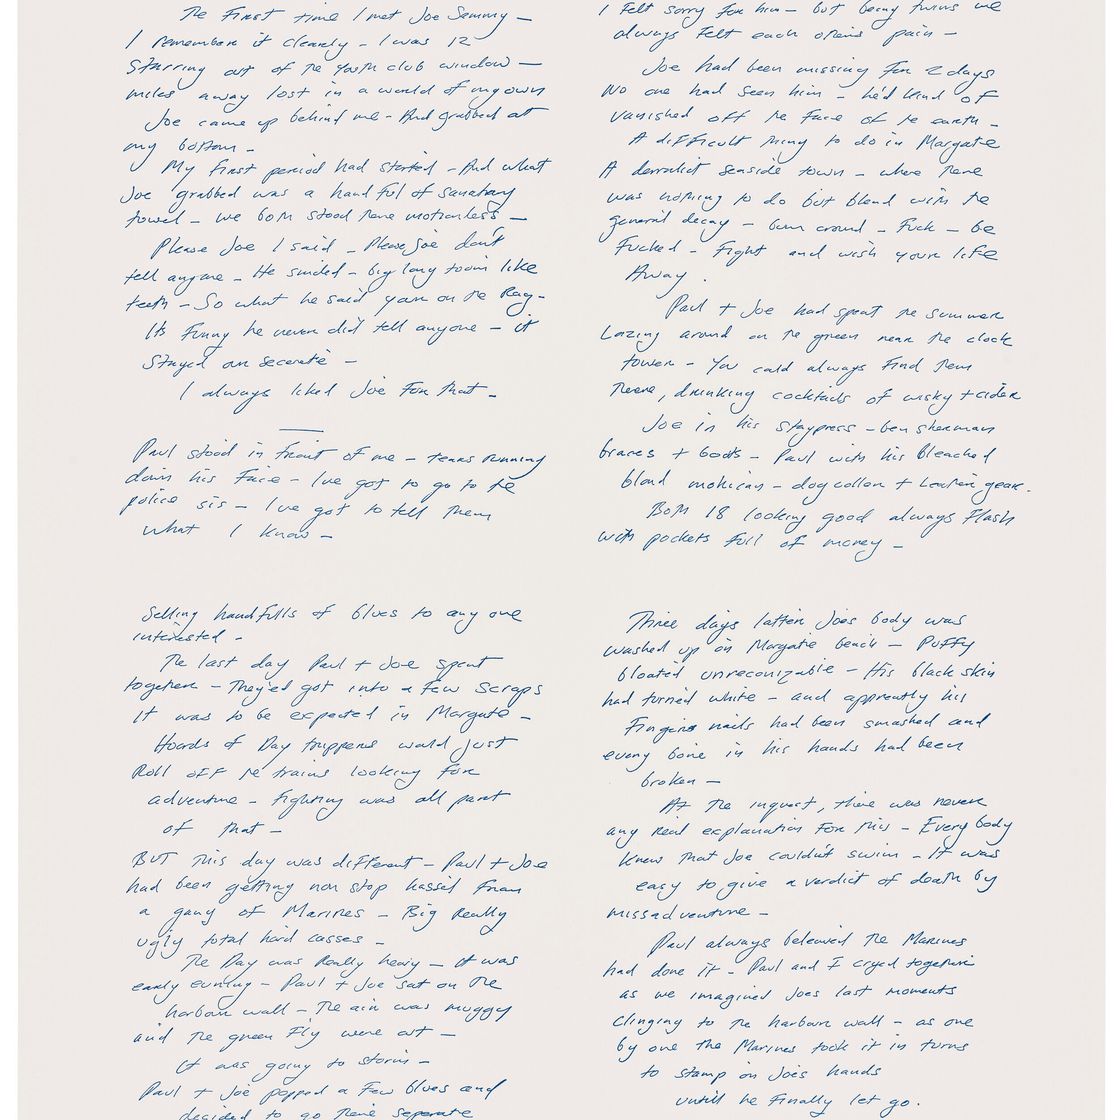 The First time I met Joe Sammy –
I remember it clearly – I was 12
Starring out of the Youth club window –
miles away lost in a world of my own
Joe came up behind me – And grabbed at
my bottom –
My first period had started – And what
Joe grabbed was a handful of sanatary
towel – we both stood there motionless –
Please Joe I said – Please Joe don't
tell anyone – He smiled – big long toom like
teeth – So what he said your on the Rag –
Its Funny he never did tell anyone – it
stayed our secrate –
I always liked Joe For that –
Paul stood in front of me – tears running
down his Face – Ive got to go to the
police sis – Ive got to tell them
what I know –
I Felt sorry For him – but being twins we
always Felt each others pain –
Joe had been missing For 2 days
No one had seen him – he'd kind of
vanished off the Face of the earth –
A difficult thing to do in Margate
A derralict seaside town – where there
was nothing to do but blend with the
general decay – bum around – Fuck – be
Fucked – Fight and wish your life
Away.
Paul + Joe had spent the summer
Lazing around on the green near the clock
tower – You could always Find them
there, drinking cocktails of wisky + cider
Joe in his staypress – ben sherman
braces + boots – Paul with his Bleached
blond mohican – dog collar + Leather gear.
Both 18 looking good always Flash
with pockets full of money –
Selling handfulls of blues to any one
interested –
The last day Paul + Joe spent
together – They'ed got into a Few Scraps
It was to be expected in Margate –
Hoards of Day trippers would just
Roll off the trains looking for
adventure – Fighting was all part
of that –
BUT This day was different – Paul + Joe
had been getting non stop hassel From
a gang of Marines – Big Really
ugly total hard cases –
The Day was Really heavy – It was
early evening – Paul + Joe sat on the
harbour wall – The air was muggy
and the green Fly were out –
It was going to storm –
Paul + Joe popped a Few blues and
decided to go there seperate
Three days latter Joes body was
washed up on Margate beach – Puffy
bloated unreconizable – His black skin
had turned white – and apprently his
Finger nails had been smashed and
every bone in his hands had been
broken –
At the inquest, there was never
any real explanation For this – Every body
knew that Joe couldn't swim – It was
easy to give a verdict of death by
missadventure –
Paul always beleived the Marines
had done it – Paul and I cryed together
as we imagined Joes last moments
clinging to the harbour wall – as one
by one the Marines took it in turns
to stamp on Joes hands
untill he Finally let go.